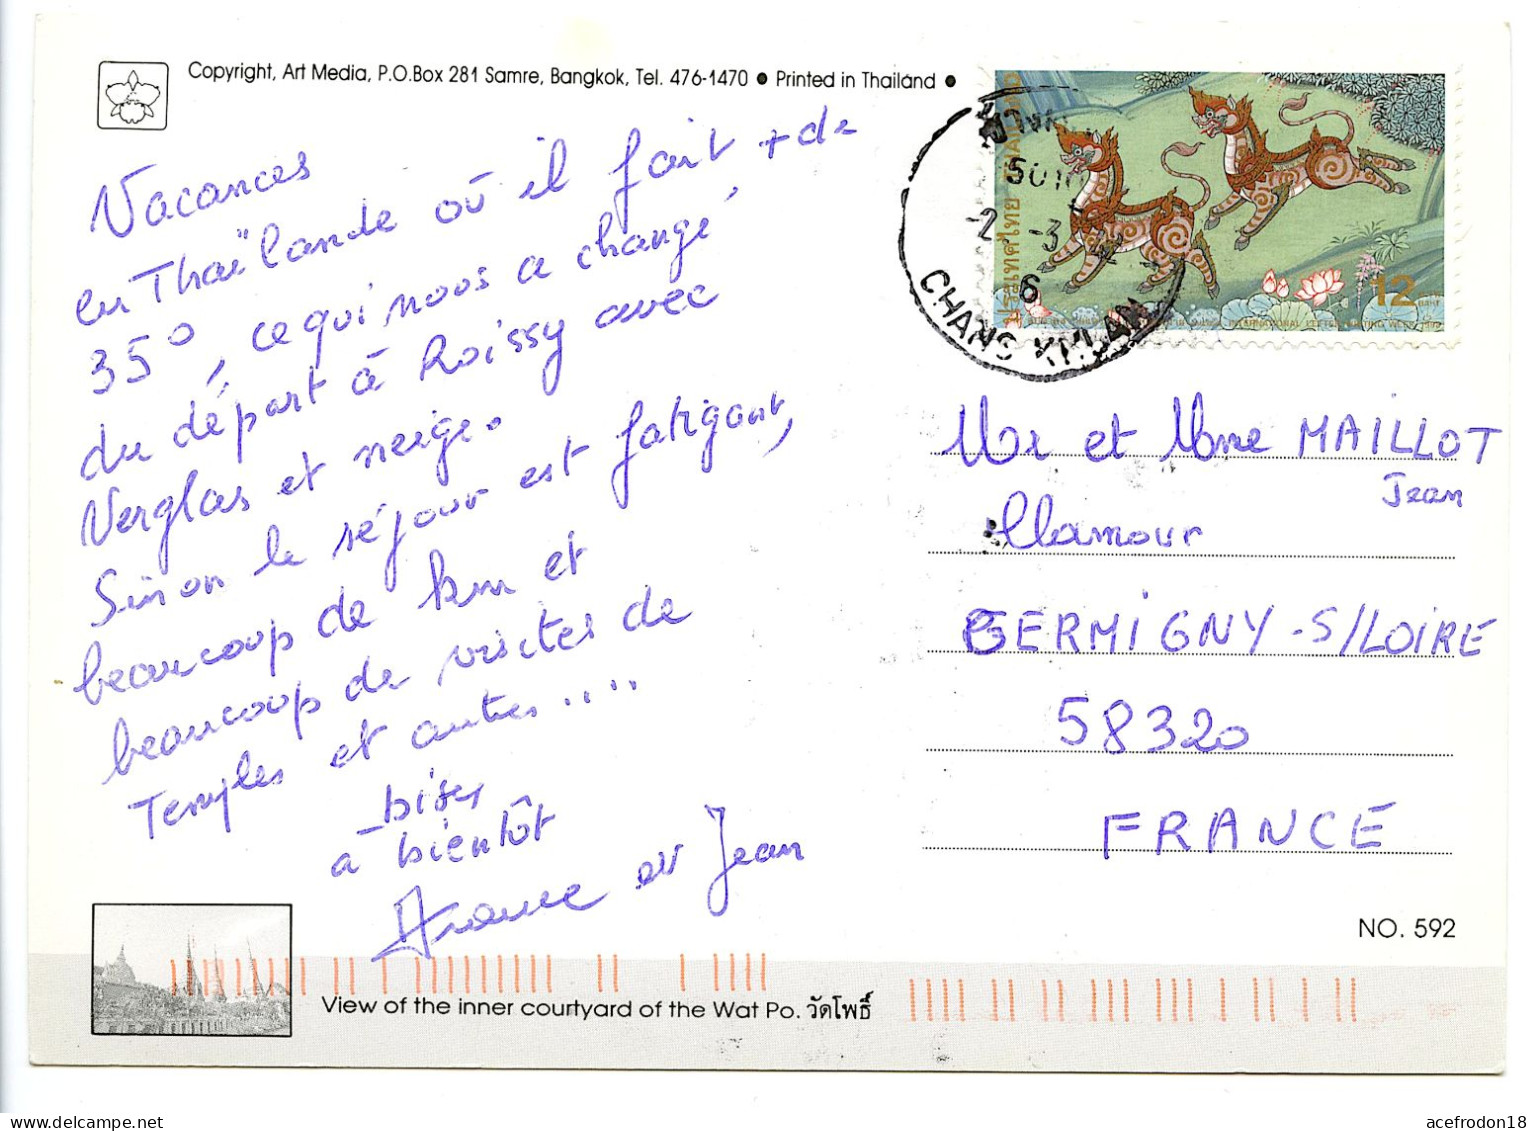 Copyright, Art Media, P.O.Box 281 Samre, Bangkok, Tel. 476-1470 ● Printed in Thailand ●
Vacances
en Thaïlande où il fait + de
35°, ce qui nous a changé
du départ à Roissy avec
Verglas et neige.
Sinon le séjour est fatigant,
beaucoup de km et
beaucoup de visites de
Temples et autres.....
bises
à bientôt
France et Jean
ประเทศไทย THAILAND
12
BAHT
INTERNATIONAL LETTER WRITING WEEK
-2 -3
6
CHANG KHLAN
Mr et Mme MAILLOT
Jean
Clamour
GERMIGNY-S/LOIRE
58320
FRANCE
NO. 592
View of the inner courtyard of the Wat Po. วัดโพธิ์
acefrodon18